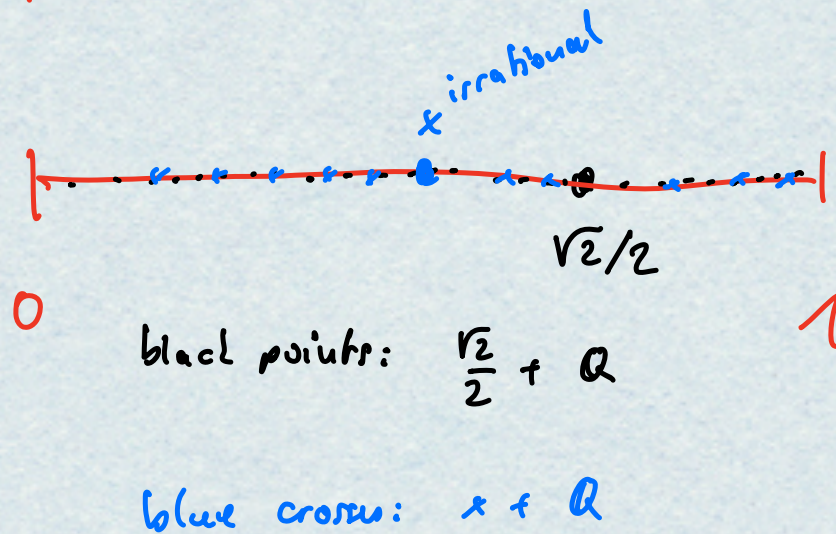 x irrational
√2/2
0 1
black points: √2/2 + Q
blue crosses: x + Q